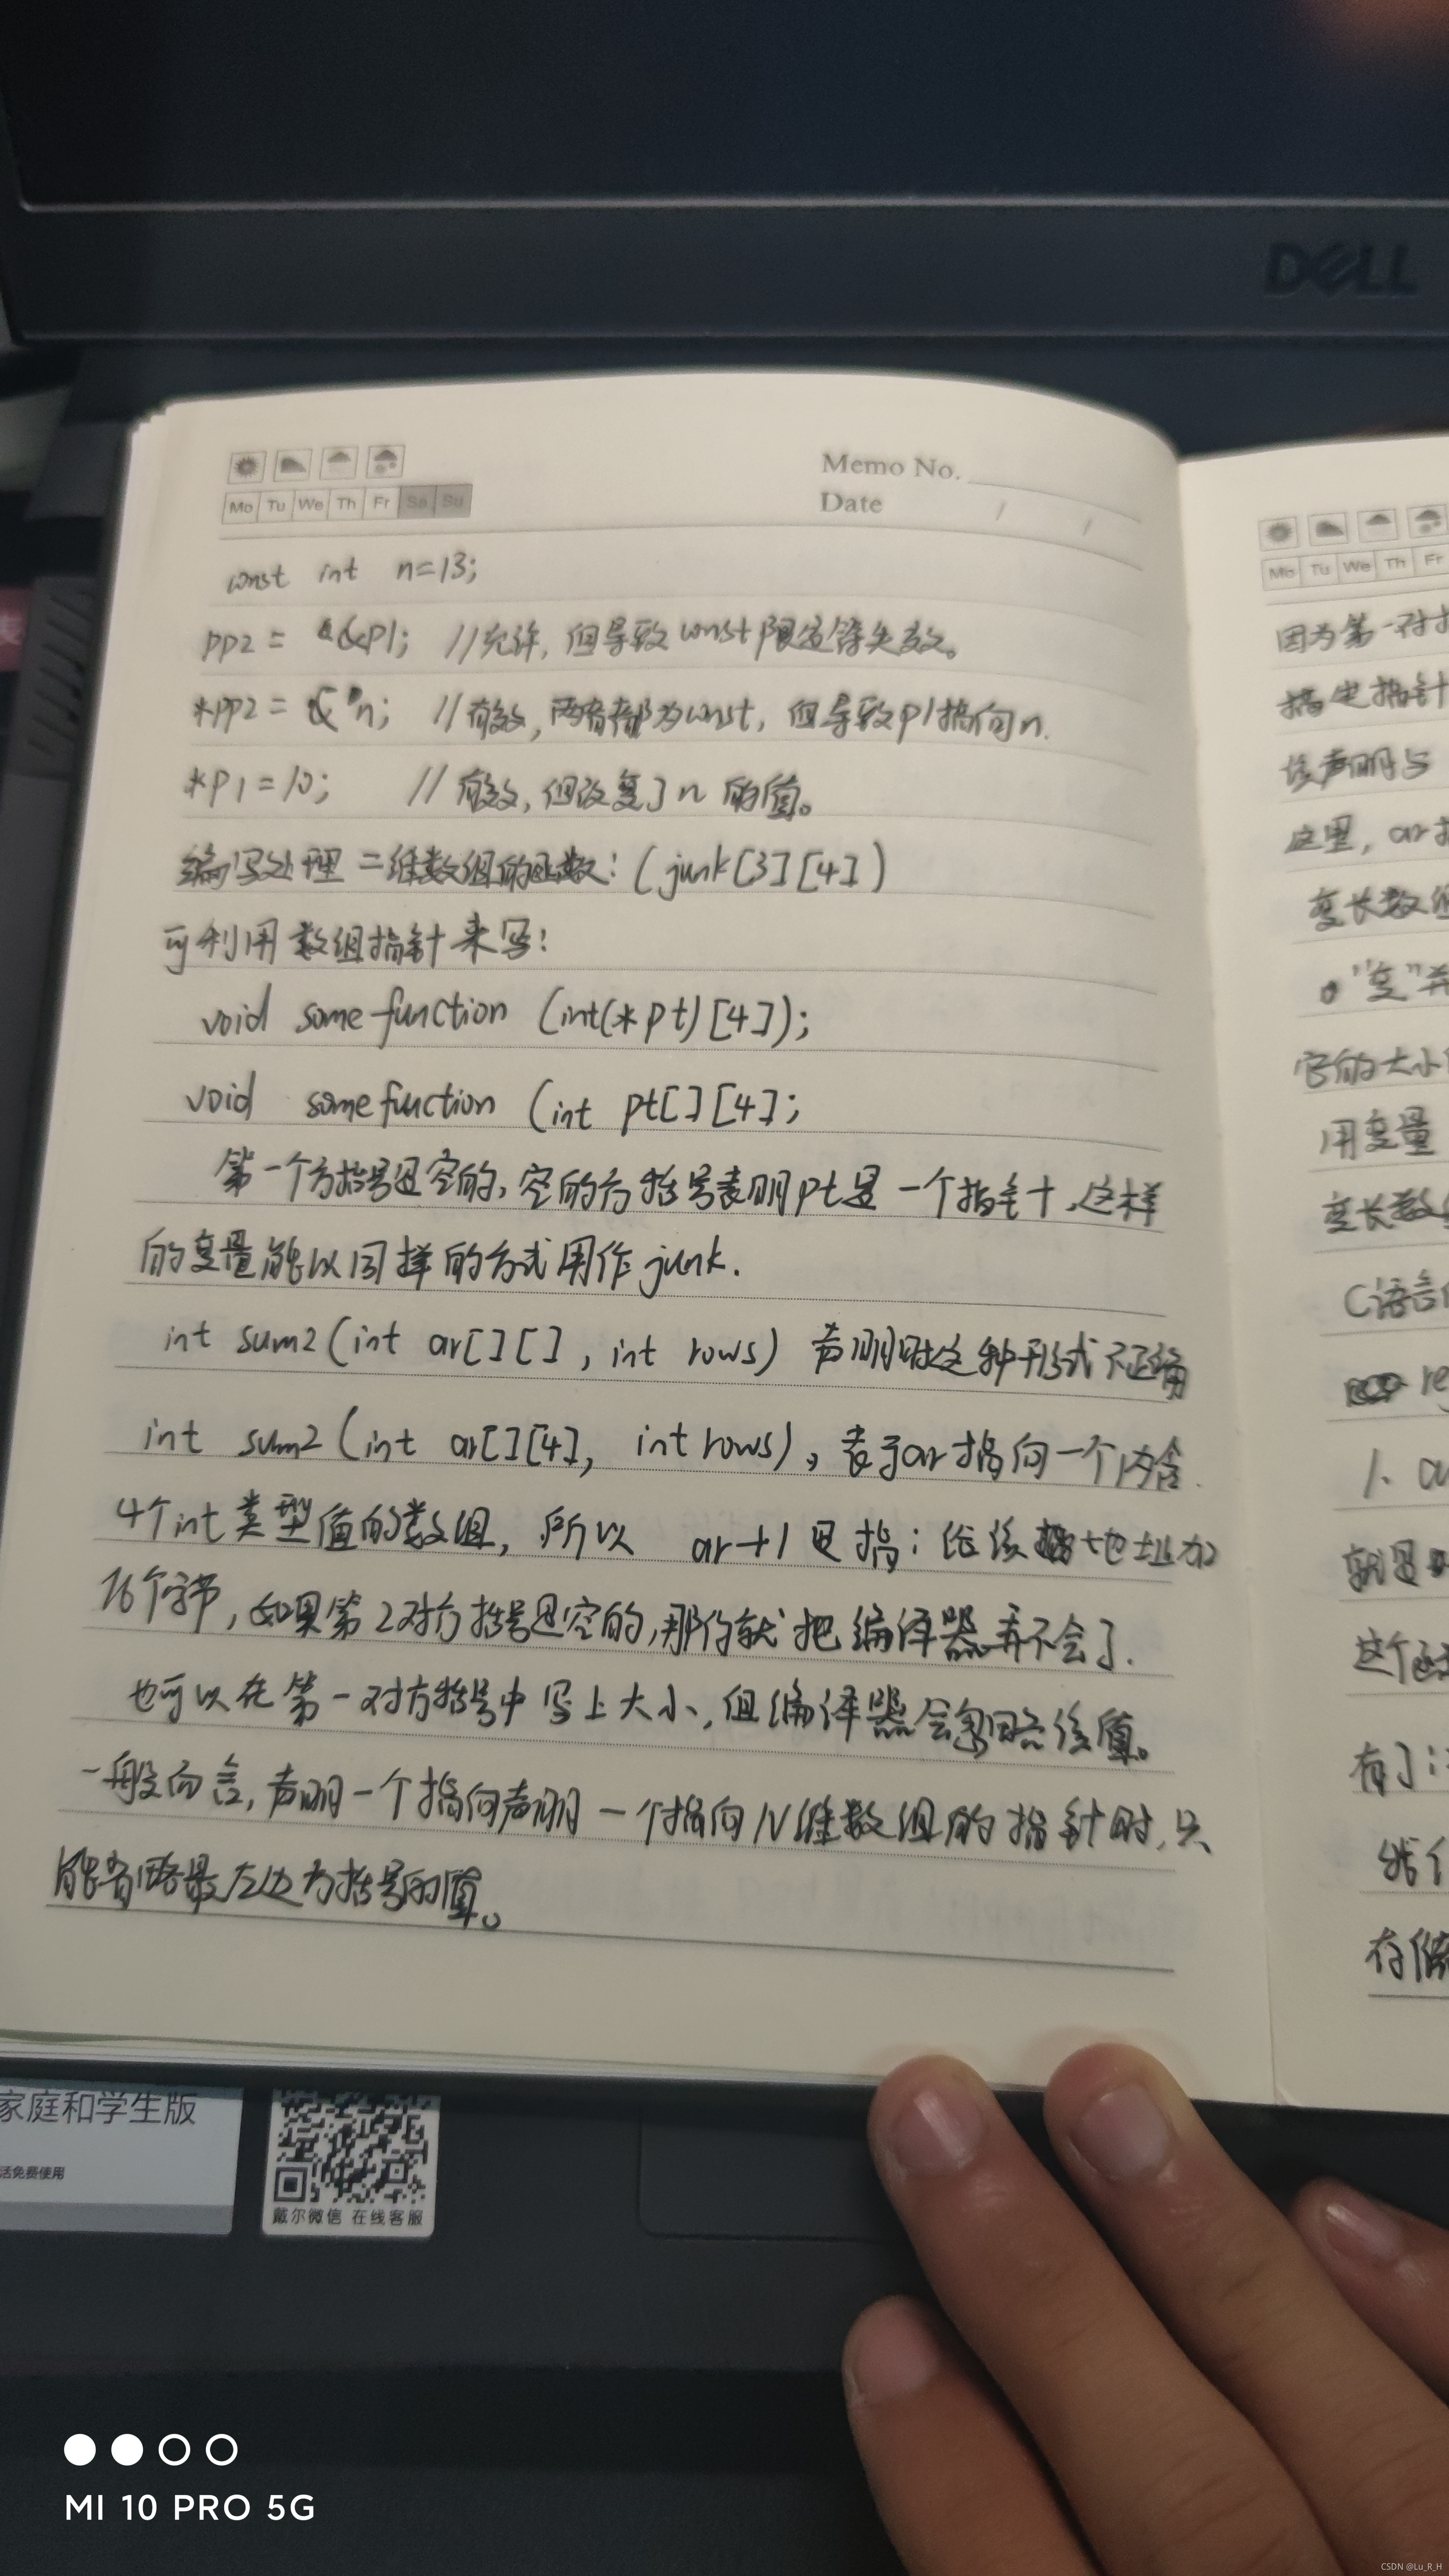 DELL
Memo No.
Date / /
Mo Tu We Th Fr Sa Su
const int n=13;
pp2 = &p1; //允许,但导致const限定符失效。
*pp2 = &n; //有效,两者都为const,但导致p1指向n.
*p1=10; //有效,但改变了n的值。
编写处理二维数组的函数:(junk[3][4])
可利用数组指针来写:
void somefunction (int(*pt)[4]);
void somefunction (int pt[][4];
第一个方括号是空的,空的方括号表明pt是一个指针,这样
的变量能以同样的方式用作junk.
int sum2(int ar[][], int rows) 声明时这种形式不正确
int sum2(int ar[][4], int rows), 表示ar指向一个内含
4个int类型值的数组, 所以 ar+1是指:给该地址加
16个字节,如果第2对方括号是空的,那你就把编译器弄不会了.
也可以在第一对方括号中写上大小,但编译器会忽略该值。
一般而言,声明一个指向声明一个指向N维数组的指针时,只
能省略最左边方括号的值。
Mo Tu We Th Fr
因为第一对
指定指针
该声明与
这里, ar
变长数组
"变"并
它的大小
用变量
变长数
C语言
re
1.
就是
这个函
有了
存储
家庭和学生版
活免费使用
戴尔微信 在线客服
MI 10 PRO 5G
CSDN @Lu_R_H